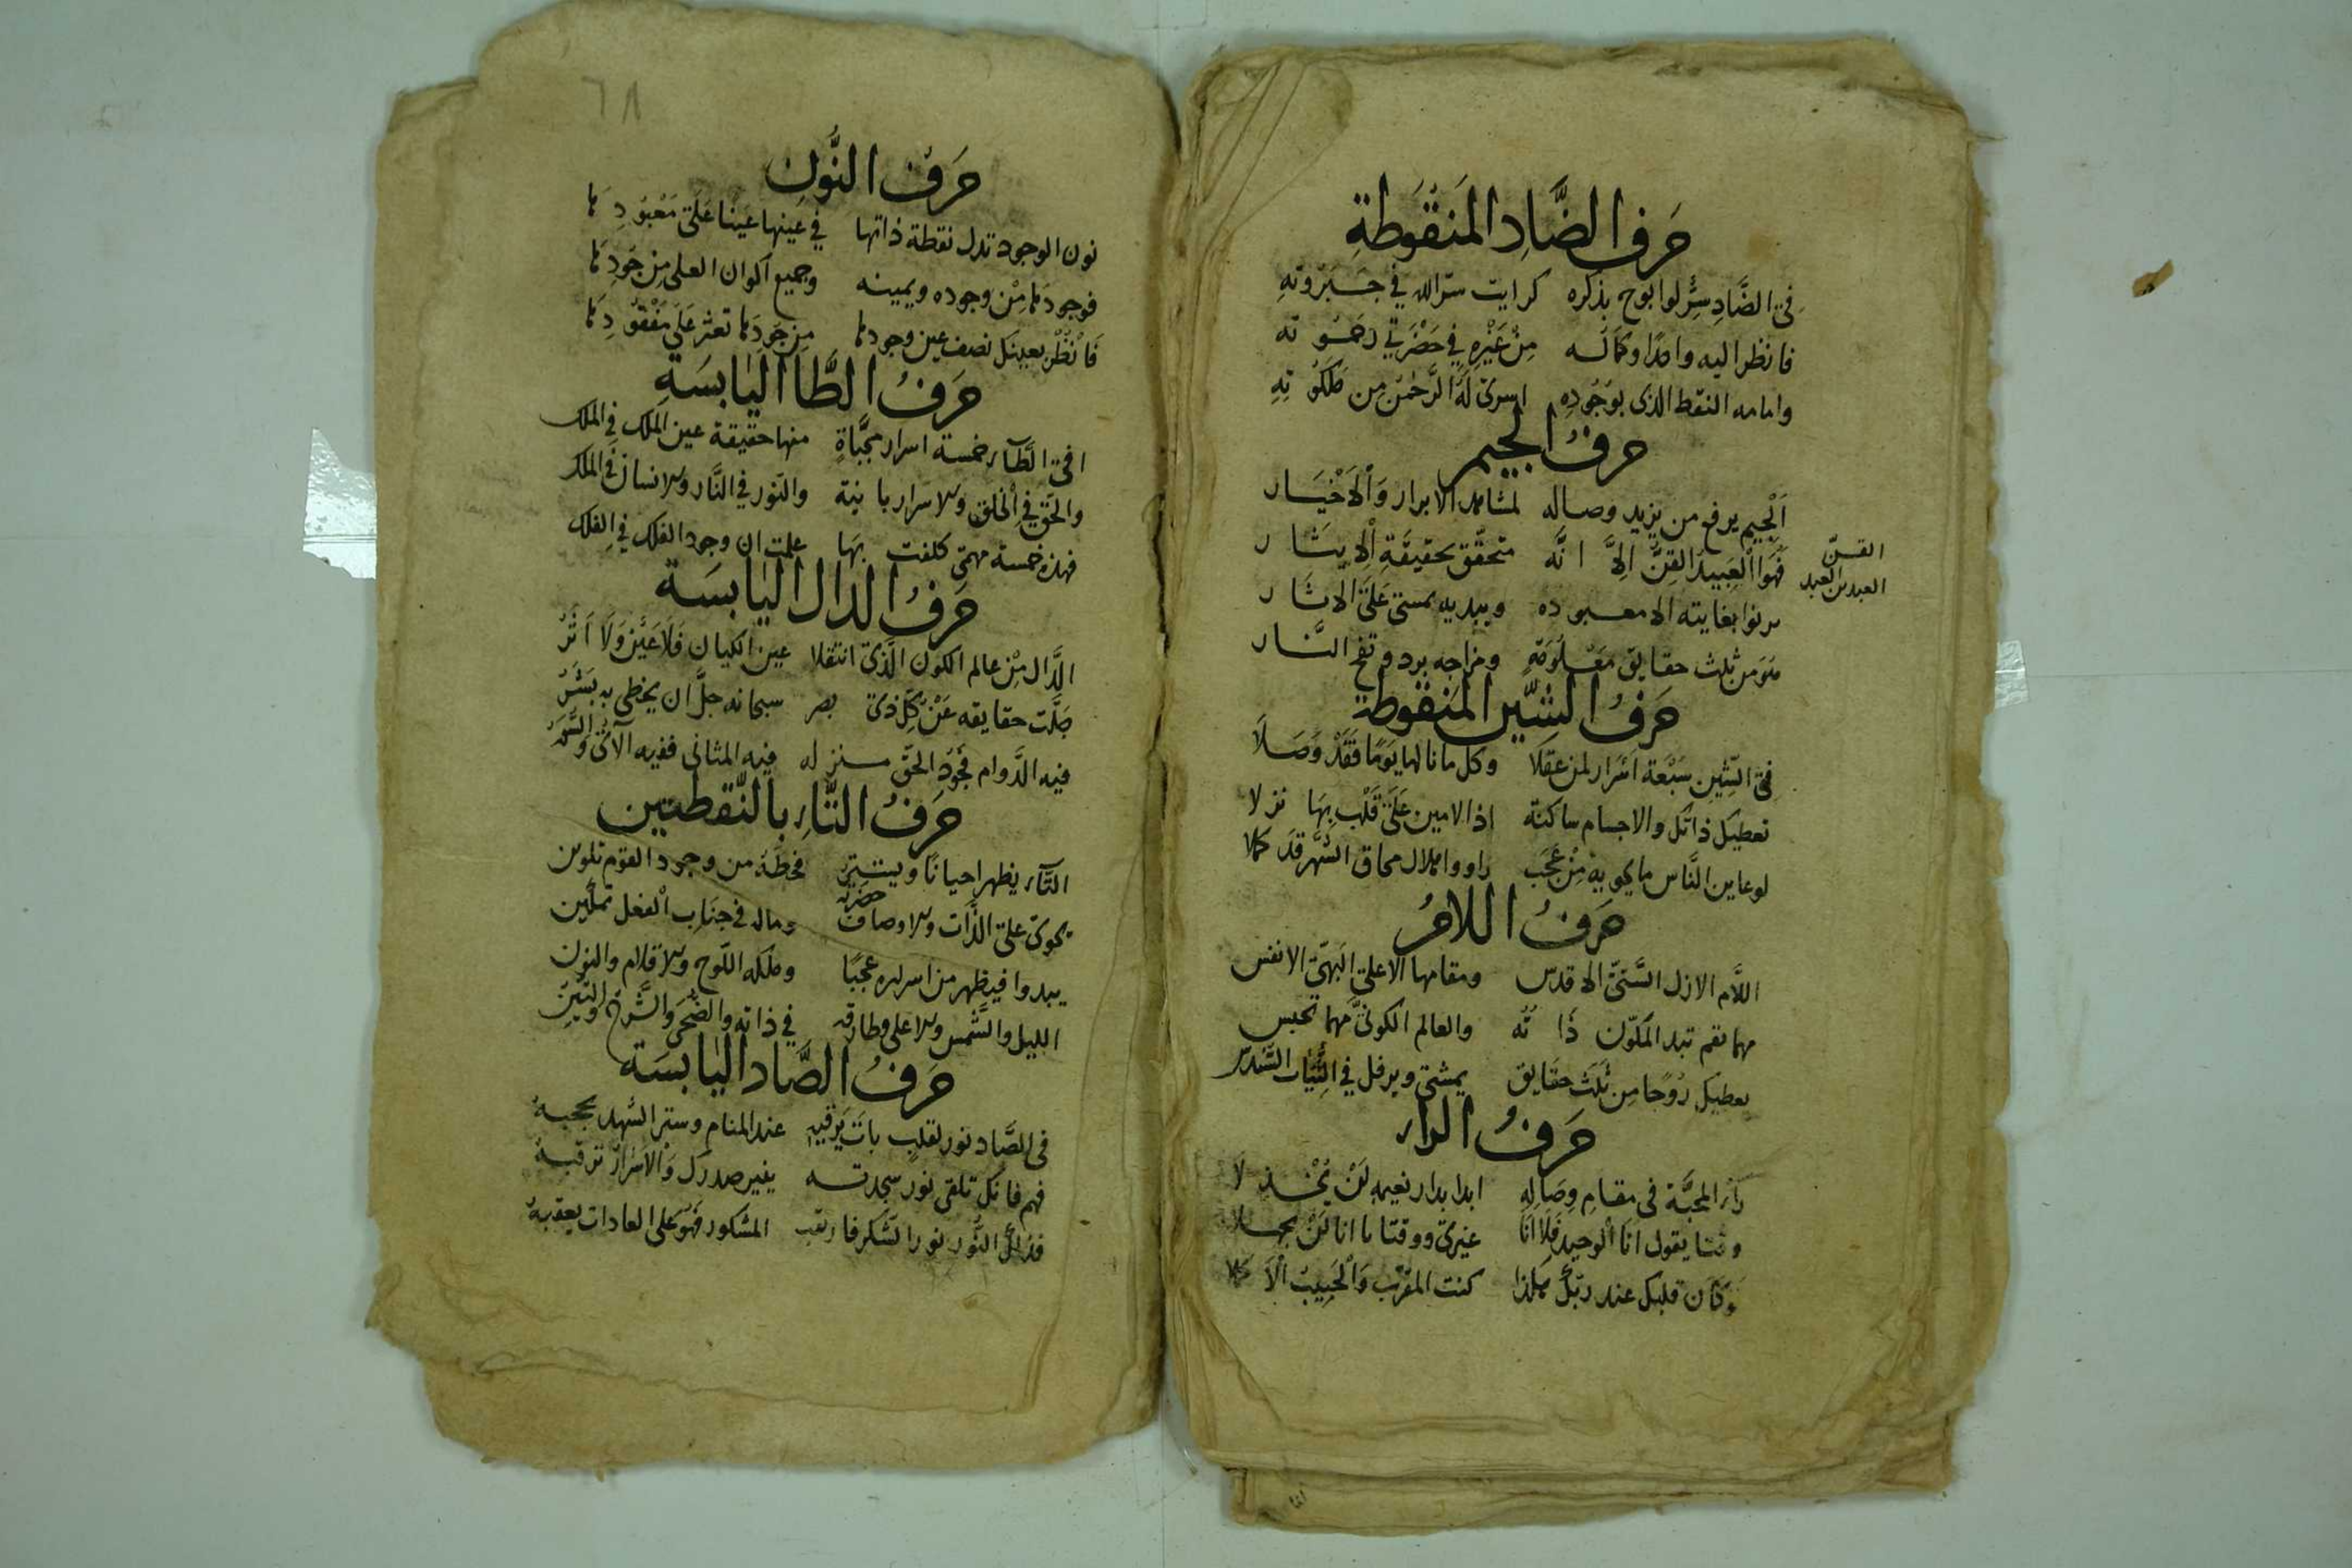 حَرفُ الضَّادِ المَنقُوَطةِ
فى الضَّادِ سِرٌّ لو ابوح بذكره كرايت سرّ الله في جَبَرُوتهِ
فانظر اليه واحدًا وكمَالُه مِنْ غَيْرِهِ في حَضْرَتي رحَمُوته
وامامه النقط الذى بوُجُودِه اسرىَ لَهُ الرَّحمٰنُ مِن مَلَكُوتِهِ
حرفُ الجيم
اَلْجِيم يرفع من يريد وصاله لمشاهد الابرار وَالْاَخْيَار
فَهوَ الْعَبِيدُ القِنُّ الِاَّ انَّه متحقّق بحقيقَةِ الْاِيثَار
القنّ
العبد بن العبد
يرنوا بغايته الى معبوده وببديه يمشى عَلَى الاثَار
هوَ من ثلث حقايق مَعْلُومَةٍ ومزاجه برد ولفح النَّار
حَرفُ الشّين المَنقوطة
فى الشّين سَبْعَة اَسْرَار لمن عقلَا وكل ما نالها يَوْمًا فَقَدْ وَصَلَا
تعطيك ذاتك والاجسام ساكنة اذا الامين عَلَى قَلْب بهَا نزلا
لو عاين النَّاس ما يحويه مِنْ عَجَب راووا هلال محاق الشَّهْر قد كملا
حَرفُ اللامُ
اللَّام الازل السَّنىّ الاقدس ومقامها الاعلى البَهىّ الانفس
مهما تقم تبد المكوّن ذَاتُه والعالم الكونىّ مهما تجلس
يعطيك رُوحًا مِن ثلث حقايق يمشى ويرفل في الثِيَاب السّندس
حَرفُ الراء
رَاءُ المحبَّة فى مقام وِصَالِه ابدا بدار نعيمهِ لَنْ يُخْذلَا
وقتا يقول انَا الوحيد فَلَا انَا غيرى ووقتا يا انا لَنْ يجهلا
وَكَان قلبك عند ربّك هكذا كنت المقرّب وَالْحَبِيبَ الْاَكمَلا
٦٨
حَرفُ النُّونِ
نون الوجود تدل نقطة ذاتها في عَينها عَينا عَلَى مَعْبُودِهَا
فوجودهَا مِنْ وجوده ويمينه وجميع اكوان العلى مِن جَودِهَا
فَانْظُرْ بعينك نصف عين وجودها مِن جَودهَا تعثر عَلَى مَفْقُودِهَا
حَرفُ الطَّا اليٰابسَةِ
فى الطَّاء خمسة اسرار مخبَّأةٍ منها حقيقة عين المَلْك في الملك
والحَق في الخلق والاسرار بانبة والنّور في النَّار والانسان في الملك
فهذه خمسة مهمى كلفت بهَا علمت ان وجود الفلك في الفلك
حَرفُ الدال اليٰابسَة
الدَّال مِنْ عالم الكون الَّذى انتقلا عين الكيان فَلَا عَيْنٌ وَلَا اَثَرُ
جَلّت حقايقه عَنْ كلّ ذى بصر سبحانه جلّ ان يحظى به بَشَرُ
فيه الدَّوام فجُودُ الحَقّ منزله فيه المثانى ففيه الآىُ والسُّوَرُ
حَرفُ التّاءِ بالنّقطتين
التّاء يظهر احيانًا ويستتر فحظّهُ من وجود القوم تلوين
يحوى على الذّات والاوصاف حَضْرَتُه وماله في جنَاب الفعل تمكين
يبدوا فيظهر من اسراره عجبًا وملكه اللّوح والاقلام والنون
الليل والشَّمس والاعلى وطارقه في ذاته والضّحى والشَّرح والتين
حَرفُ الصَّاد اليٰابسَة
فى الصَّاد نور لقلب باتَ يَرْقبه عند المنام وستر السّهد يحجبهُ
فنم فانّك تلقى نور سجدته ينير صدرك وَالاسْرَارُ ترقبهُ
فذلكَ النُّور نور الشّكر فارتقب المشكور فَهْوَ على العادات يعقبهُ